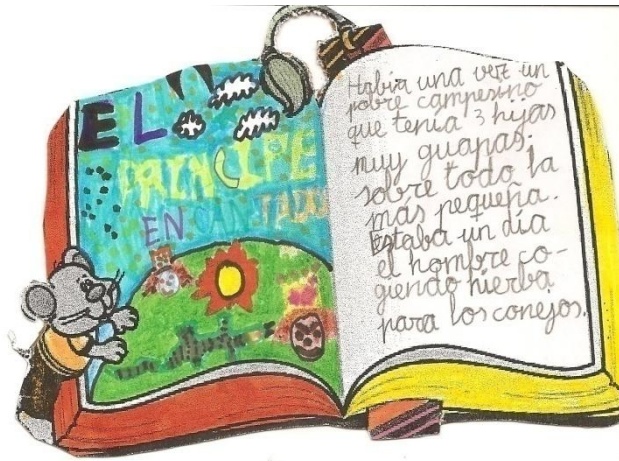 EL
PRINCIPE
ENCANTADO
Habia una vez un
pobre campesino
que tenía 3 hijas
muy guapas,
sobre todo la
más pequeña.
Estaba un día
el hombre co-
giendo hierba
para los conejos.